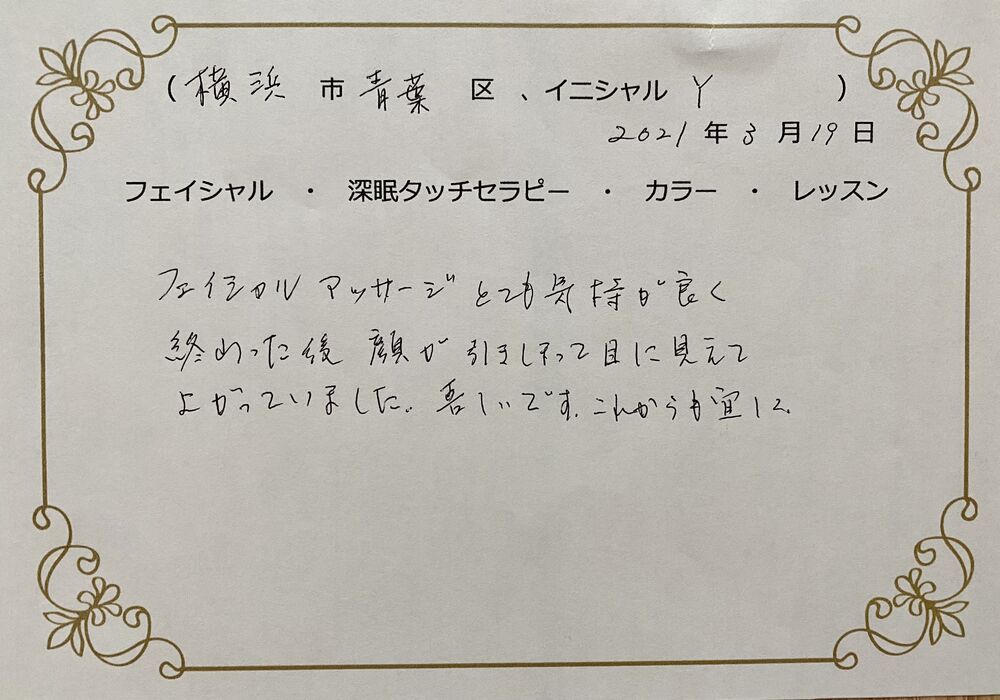 （横浜 市 青葉 区 、イニシャル Y ）
2021 年 3 月 19 日
フェイシャル ・ 深眠タッチセラピー ・ カラー ・ レッスン
フェイシャル マッサージ とても気持が良く
終わった後 顔が引きしまって目に見えて
上がっていました。嬉しいです。これからも宜しく